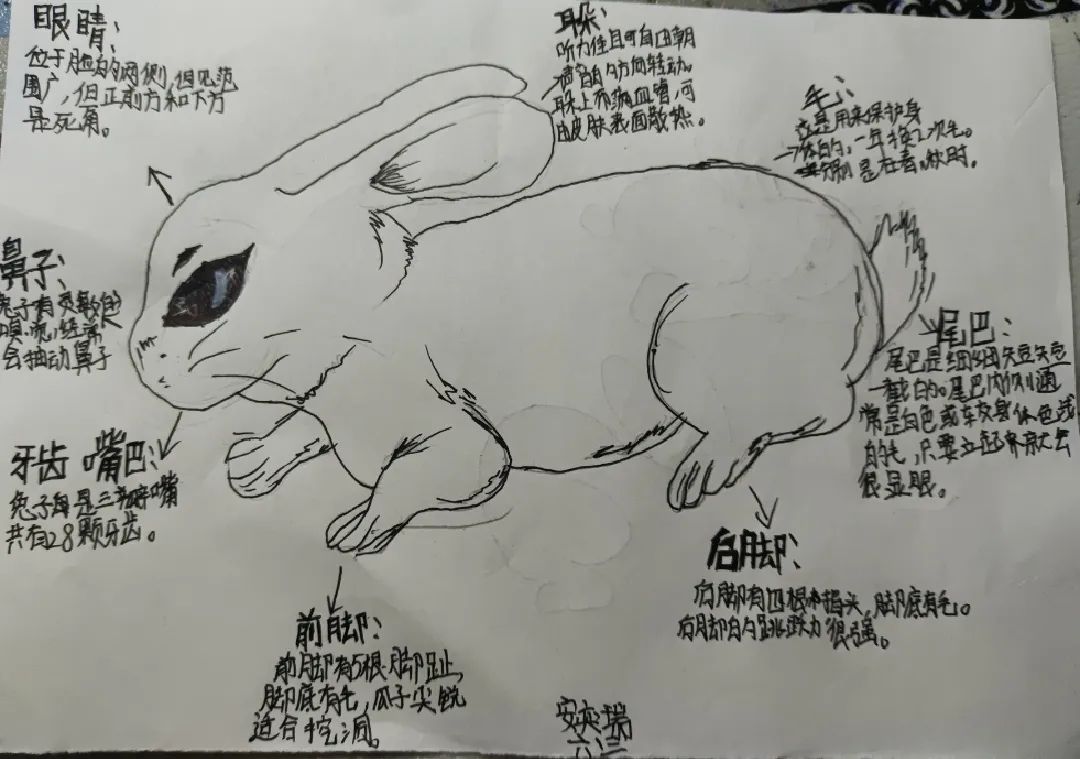 眼睛：
位于脸的两侧，但见范
围广，但正前方和下方
是死角。
耳朵：
听力佳且可自由朝
声音的方向转动。
耳朵上布满血管，可
由皮肤表面散热。
毛：
这是用来保护身
体的，一年换2次毛。
分别是在春、秋时。
鼻子：
兔子有灵敏的
嗅觉，经常
会抽动鼻子
尾巴：
尾巴是细细短短
一截的。尾巴内侧通
常是白色或较身体色浅
的毛，只要立起来就会
很显眼。
牙齿 嘴巴：
兔子是三瓣嘴
共有28颗牙齿。
后脚：
后脚有四根脚指头，脚底有毛。
后脚的跳跃力很强。
前脚：
前脚有5根脚趾，
脚底有毛，爪子尖锐
适合挖洞。
瑞
六、三